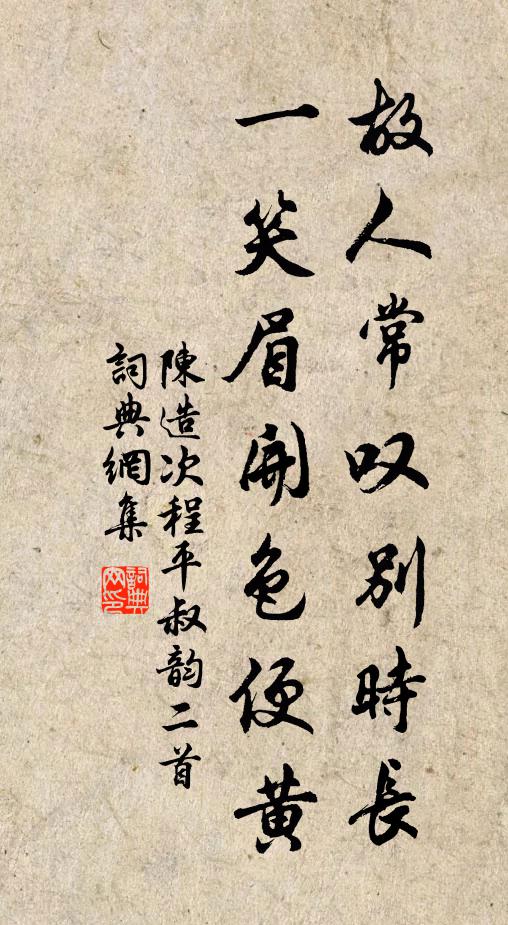 故人常叹別時長
一笑眉開色便黃
陳造次程平叔韵二首
詞典網集
詞典网印